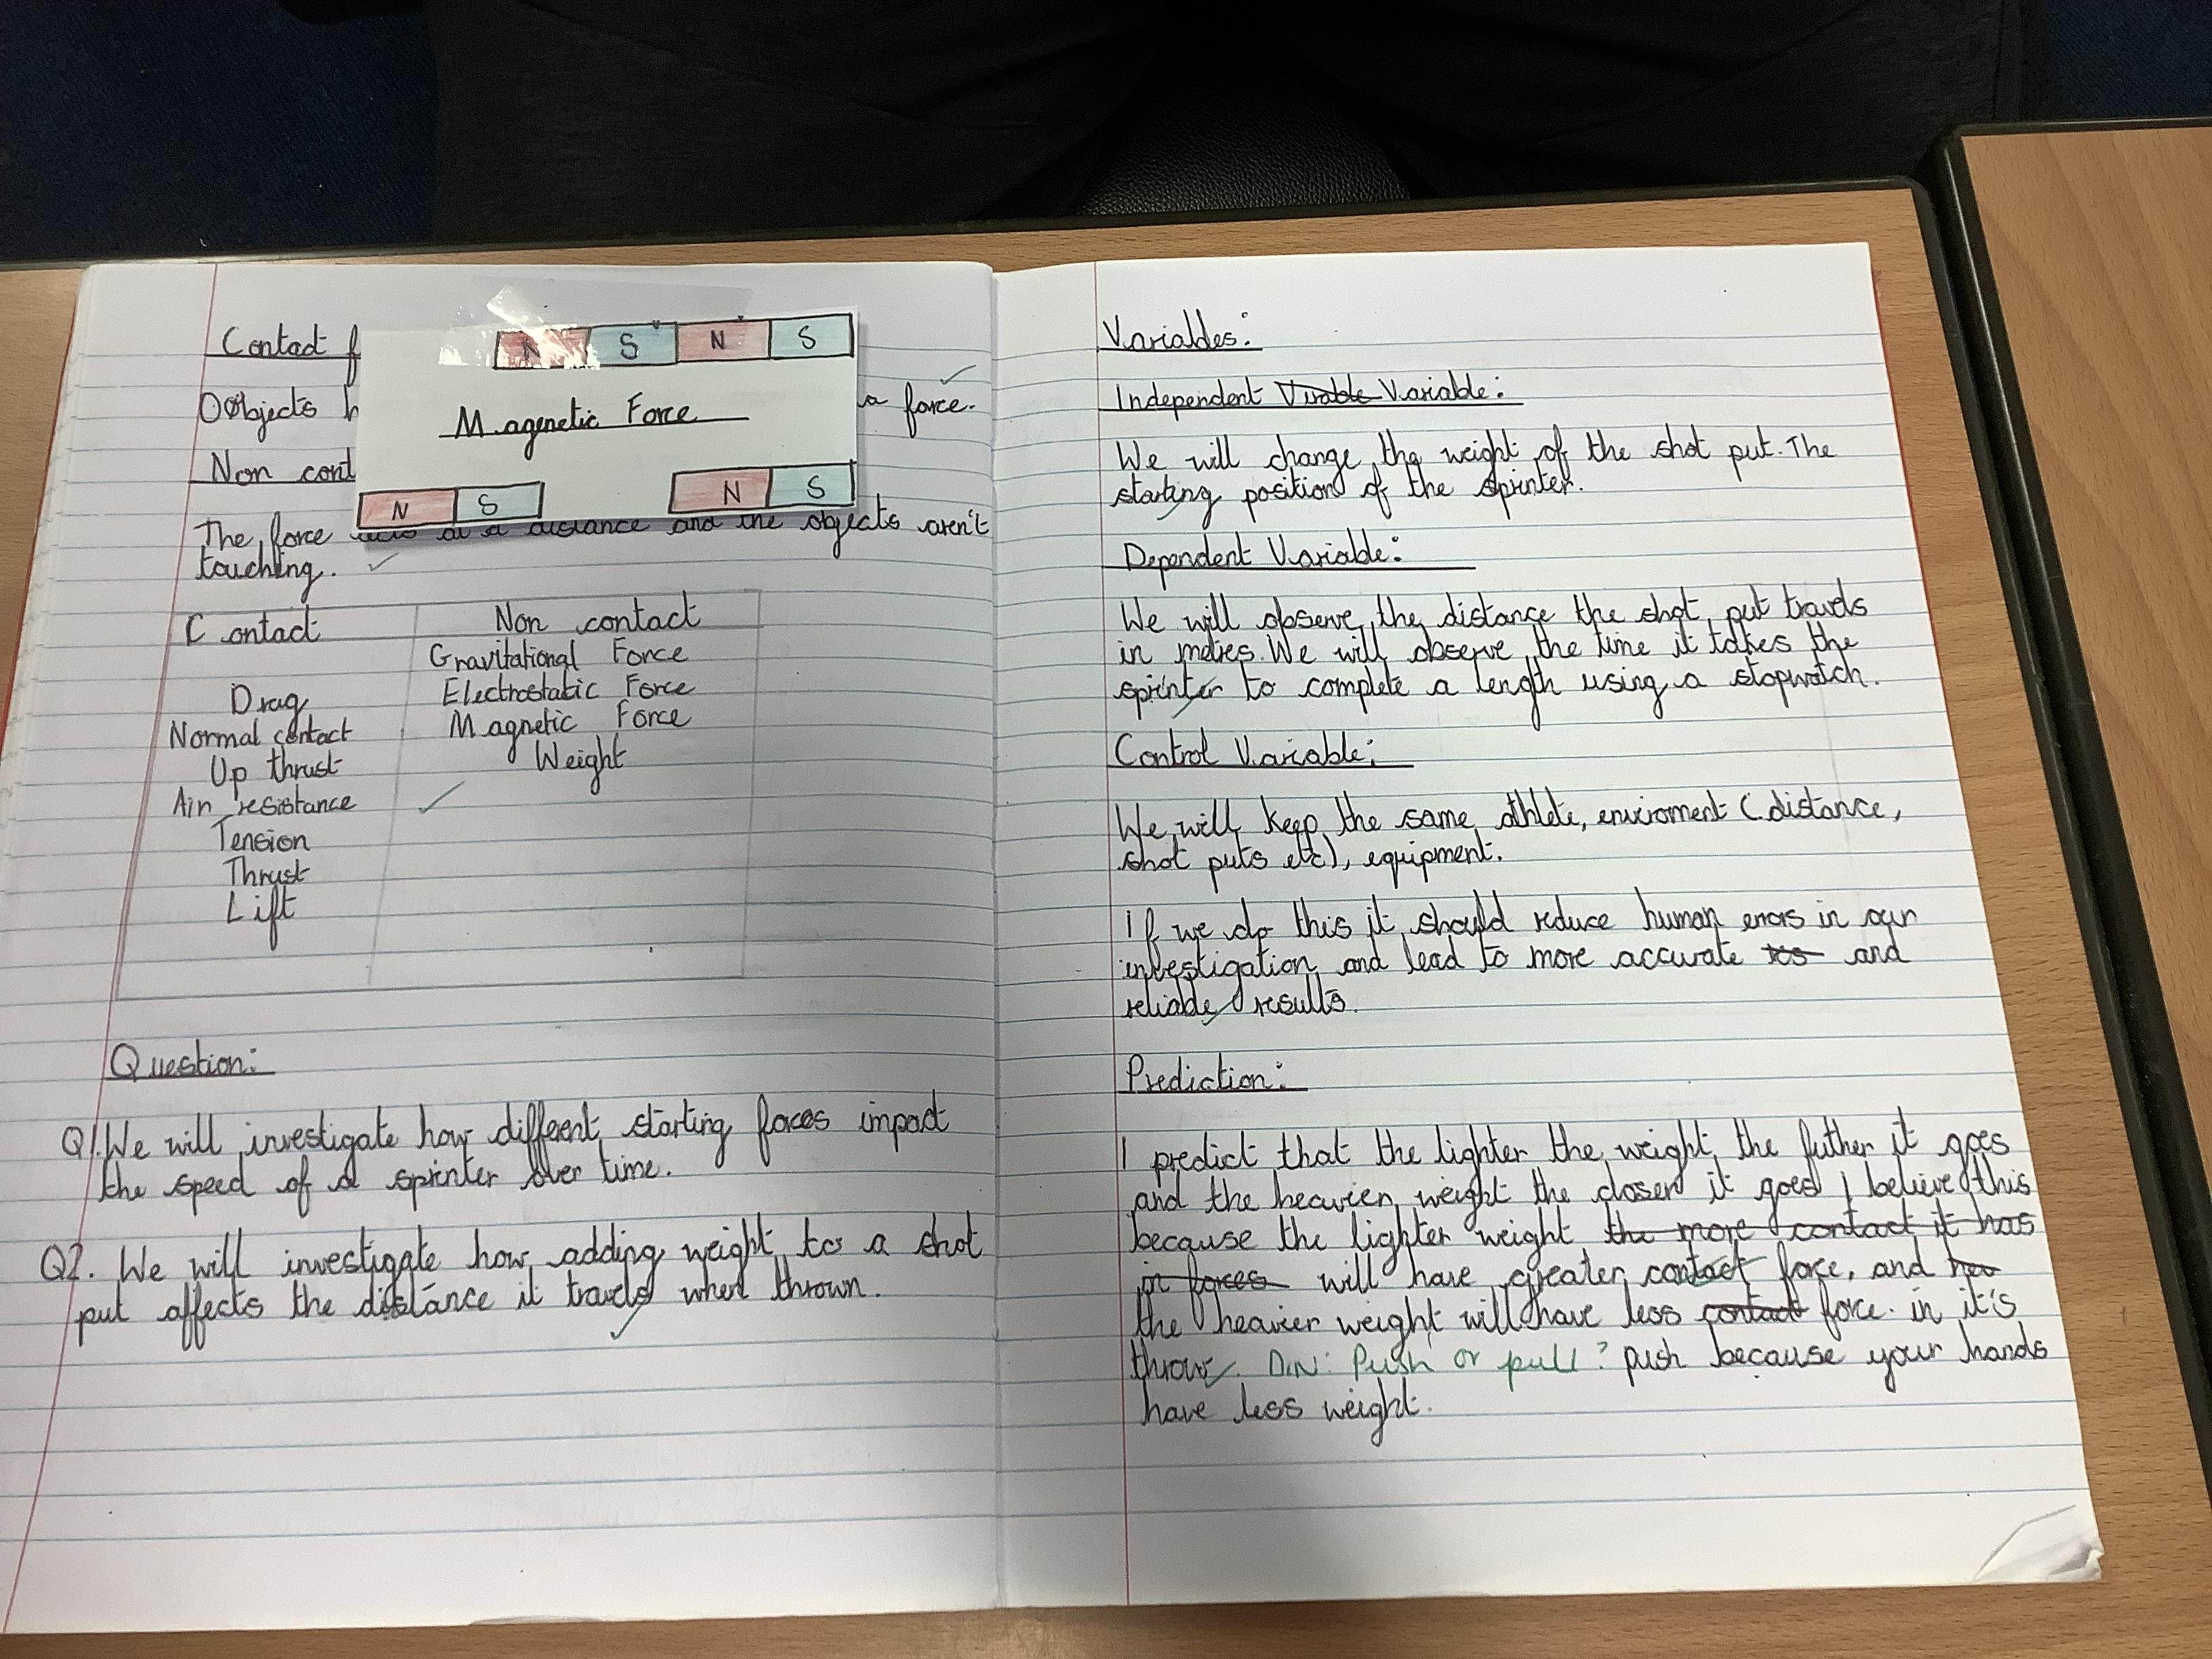 Contact f
N S N S
OObjects h
a force.
Magenetic Force
Non cont
N S N S
The force acts at a distance and the objects aren't
touching.
Contact Non contact
Gravitational Force
Drag Electrostatic Force
Normal contact Magnetic Force
Up thrust Weight
Air resistance
Tension
Thrust
Lift
Question:
Q1. We will investigate how different starting forces impact
the speed of a sprinter over time.
Q2. We will investigate how adding weight to a shot
put affects the distance it travels when thrown.
Variables:
Independent Virable Variable:
We will change the weight of the shot put. The
starting position of the sprinter.
Dependent Variable:
We will observe the distance the shot put travels
in metres. We will observe the time it takes the
sprinter to complete a length using a stopwatch.
Control Variable:
We will keep the same athlete, enviroment (distance,
shot puts etc), equipment.
If we do this it should reduce human errors in our
investigation and lead to more accurate res and
reliable results.
Prediction:
I predict that the lighter the weight the futher it goes
and the heavier weight the closer it goes I believe this
because the lighter weight the more contact it has
in forces will have greater contact force, and
the heavier weight will have less contact force. in it's
throw. DIN: Push or pull? push because your hands
have less weight.